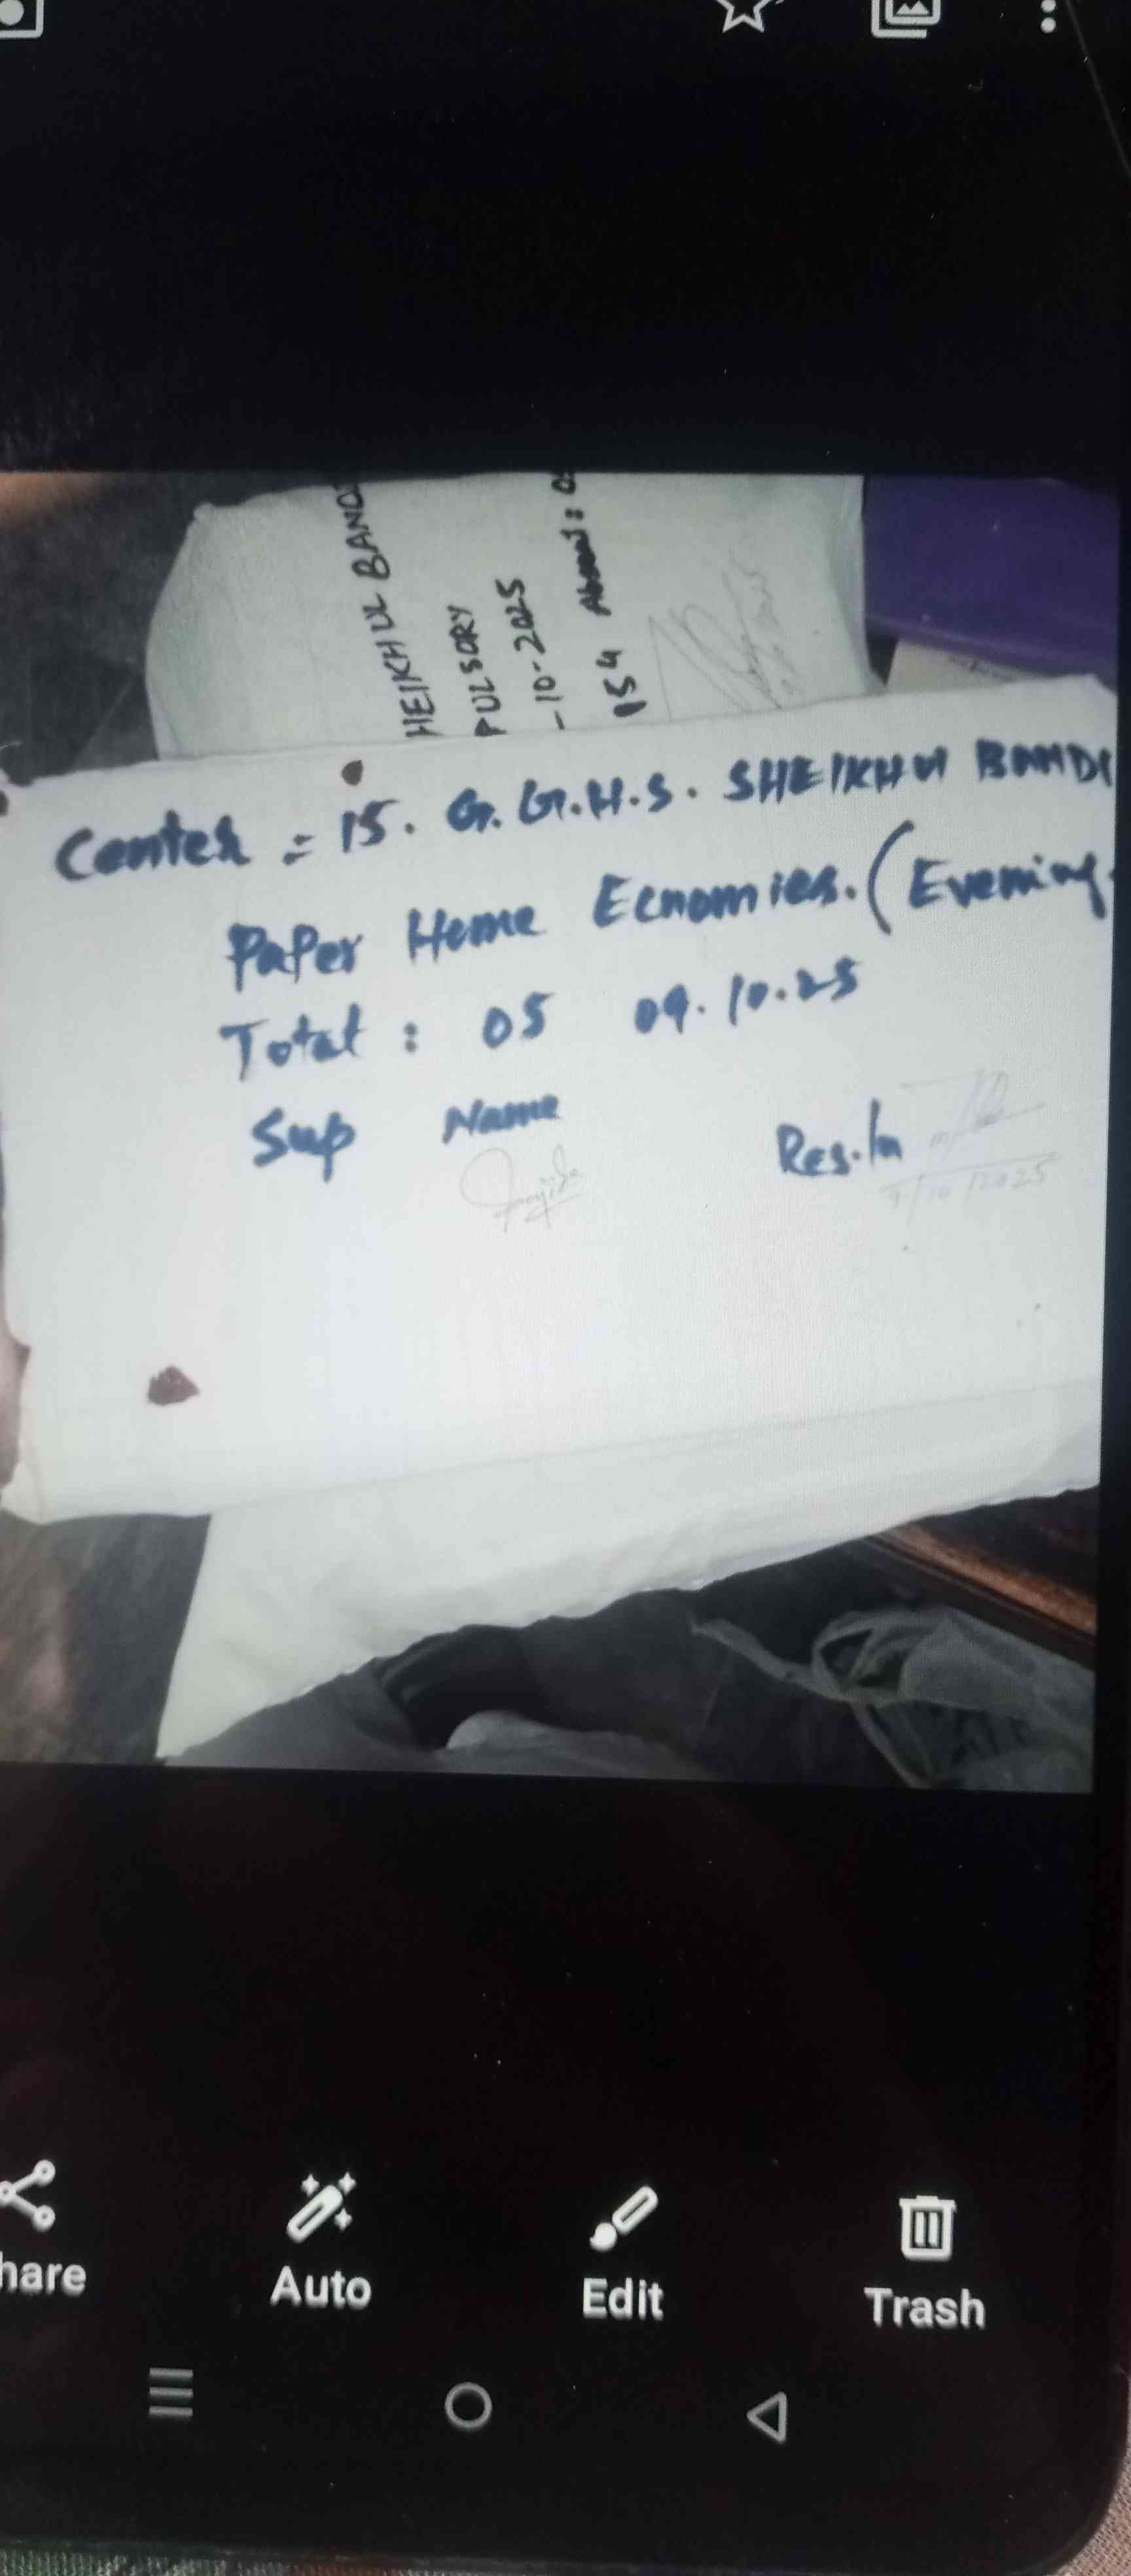 HEIKHUL BAND
PULSORY
-10-2025
154 Absent: 0
Center = 15. G.G.H.S. SHEIKHUL BANDI
Paper Home Ecnomics. (Evening
Total : 05 09.10.25
Sup Name
Res.In
9/10/2025
hare
Auto
Edit
Trash